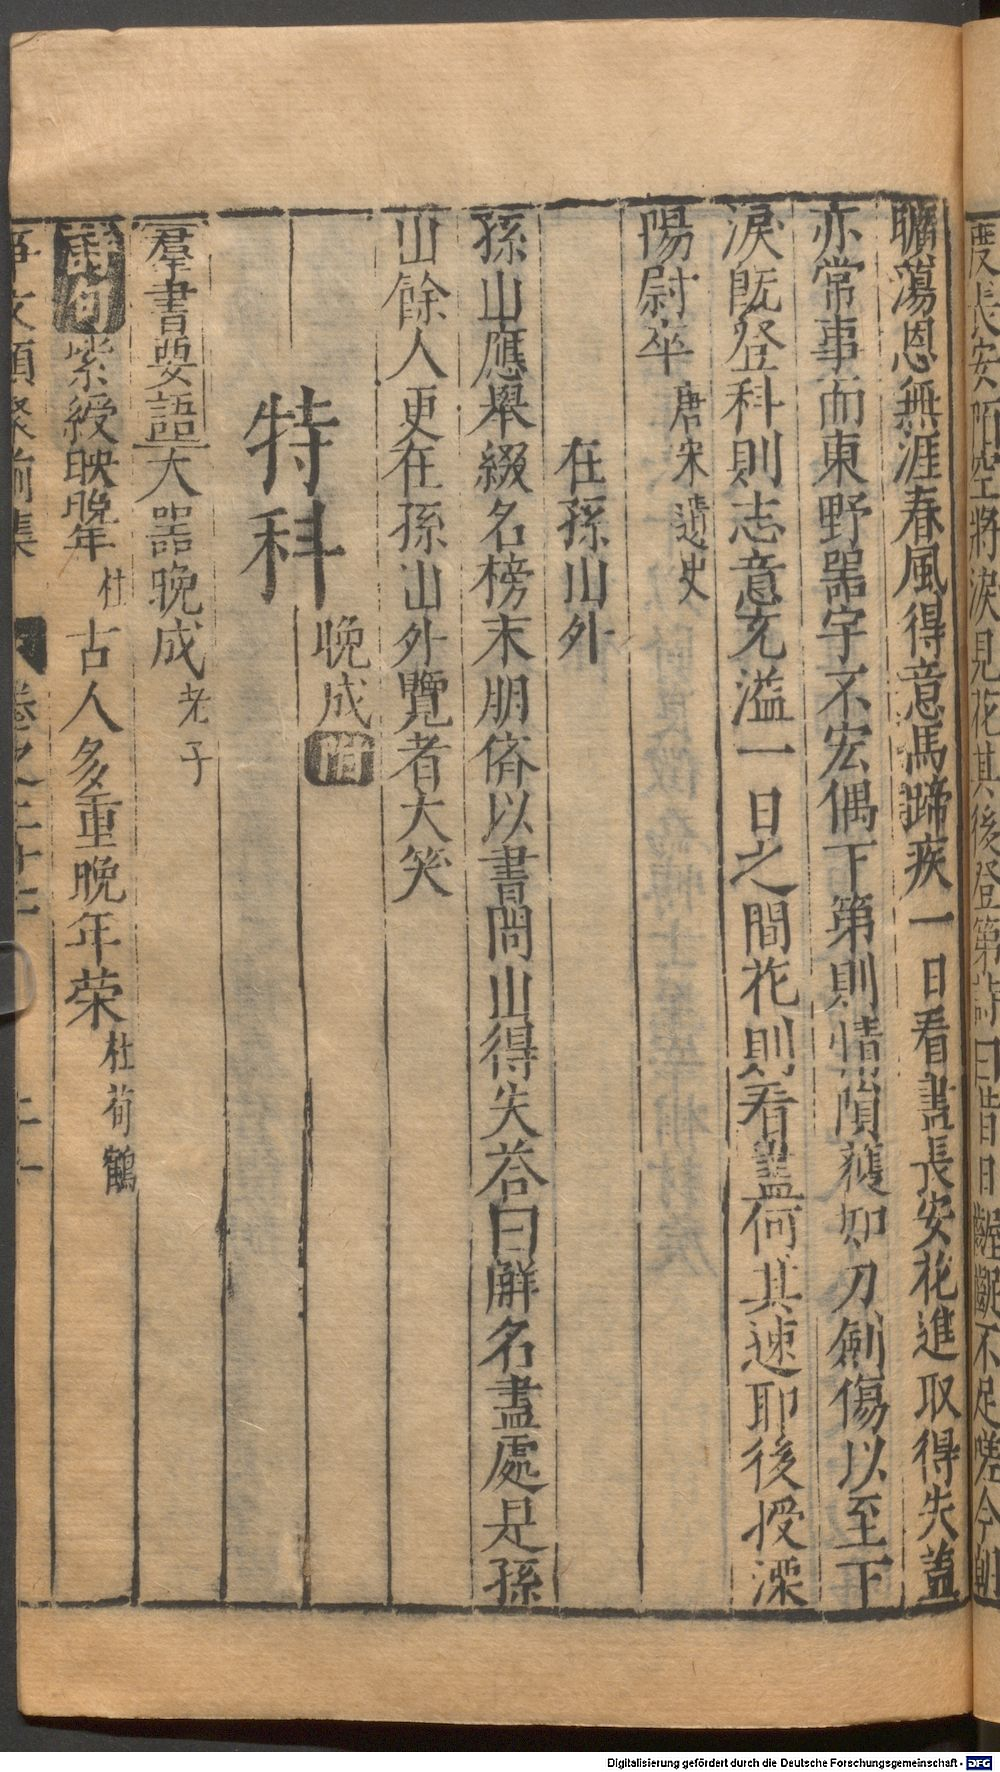 度長安陌空將淚見花其後登第詩曰昔日齷齪不足嗟今朝
曠蕩恩無涯春風得意馬蹄疾一日看盡長安花進取得失蓋
亦常事而東野器宇不宏偶下第則情隕穫如刀劍傷以至下
淚旣登科則志意充溢一日之間花則看盡何其速耶後授溧
陽尉卒 唐宋遺史
在孫山外
孫山應舉綴名榜末朋儕以書問山得失荅曰解名盡處是孫
山餘人更在孫山外覽者大笑
晚成附
特科
羣書要語大器晚成老子
紫綬映暁年杜 古人多重晚年荣杜荀鶴
事文類聚前集 卷之二十七
Digitalisierung gefördert durch die Deutsche Forschungsgemeinschaft - DFG